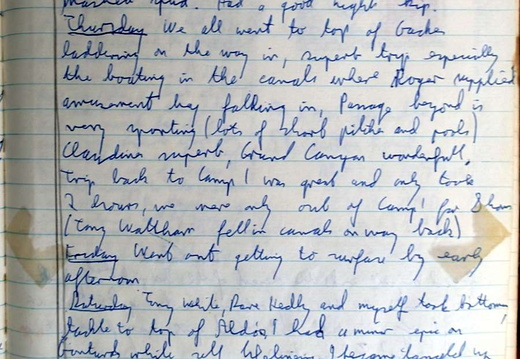 mashed spud. Had a good night kip.
Thursday We all went to top of Gachés
laddering on the way in, superb trip especially
the boating in the canals where Roger supplied
amusement by falling in, Passage beyond is
very sporting (lots of short pitches and pools)
Claudine superb, Grand Canyon wonderfull.
trip back to Camp 1 was great and only took
2 hours, we were only out of Camp 1 for 8 hours
(Tony Waltham fell in canals on way back)
Friday Went out getting to surface by early
afternoon
Saturday Tony White, Dave Hedley and myself took bottom,
tackle to top of I had a minor epic on
while self I became